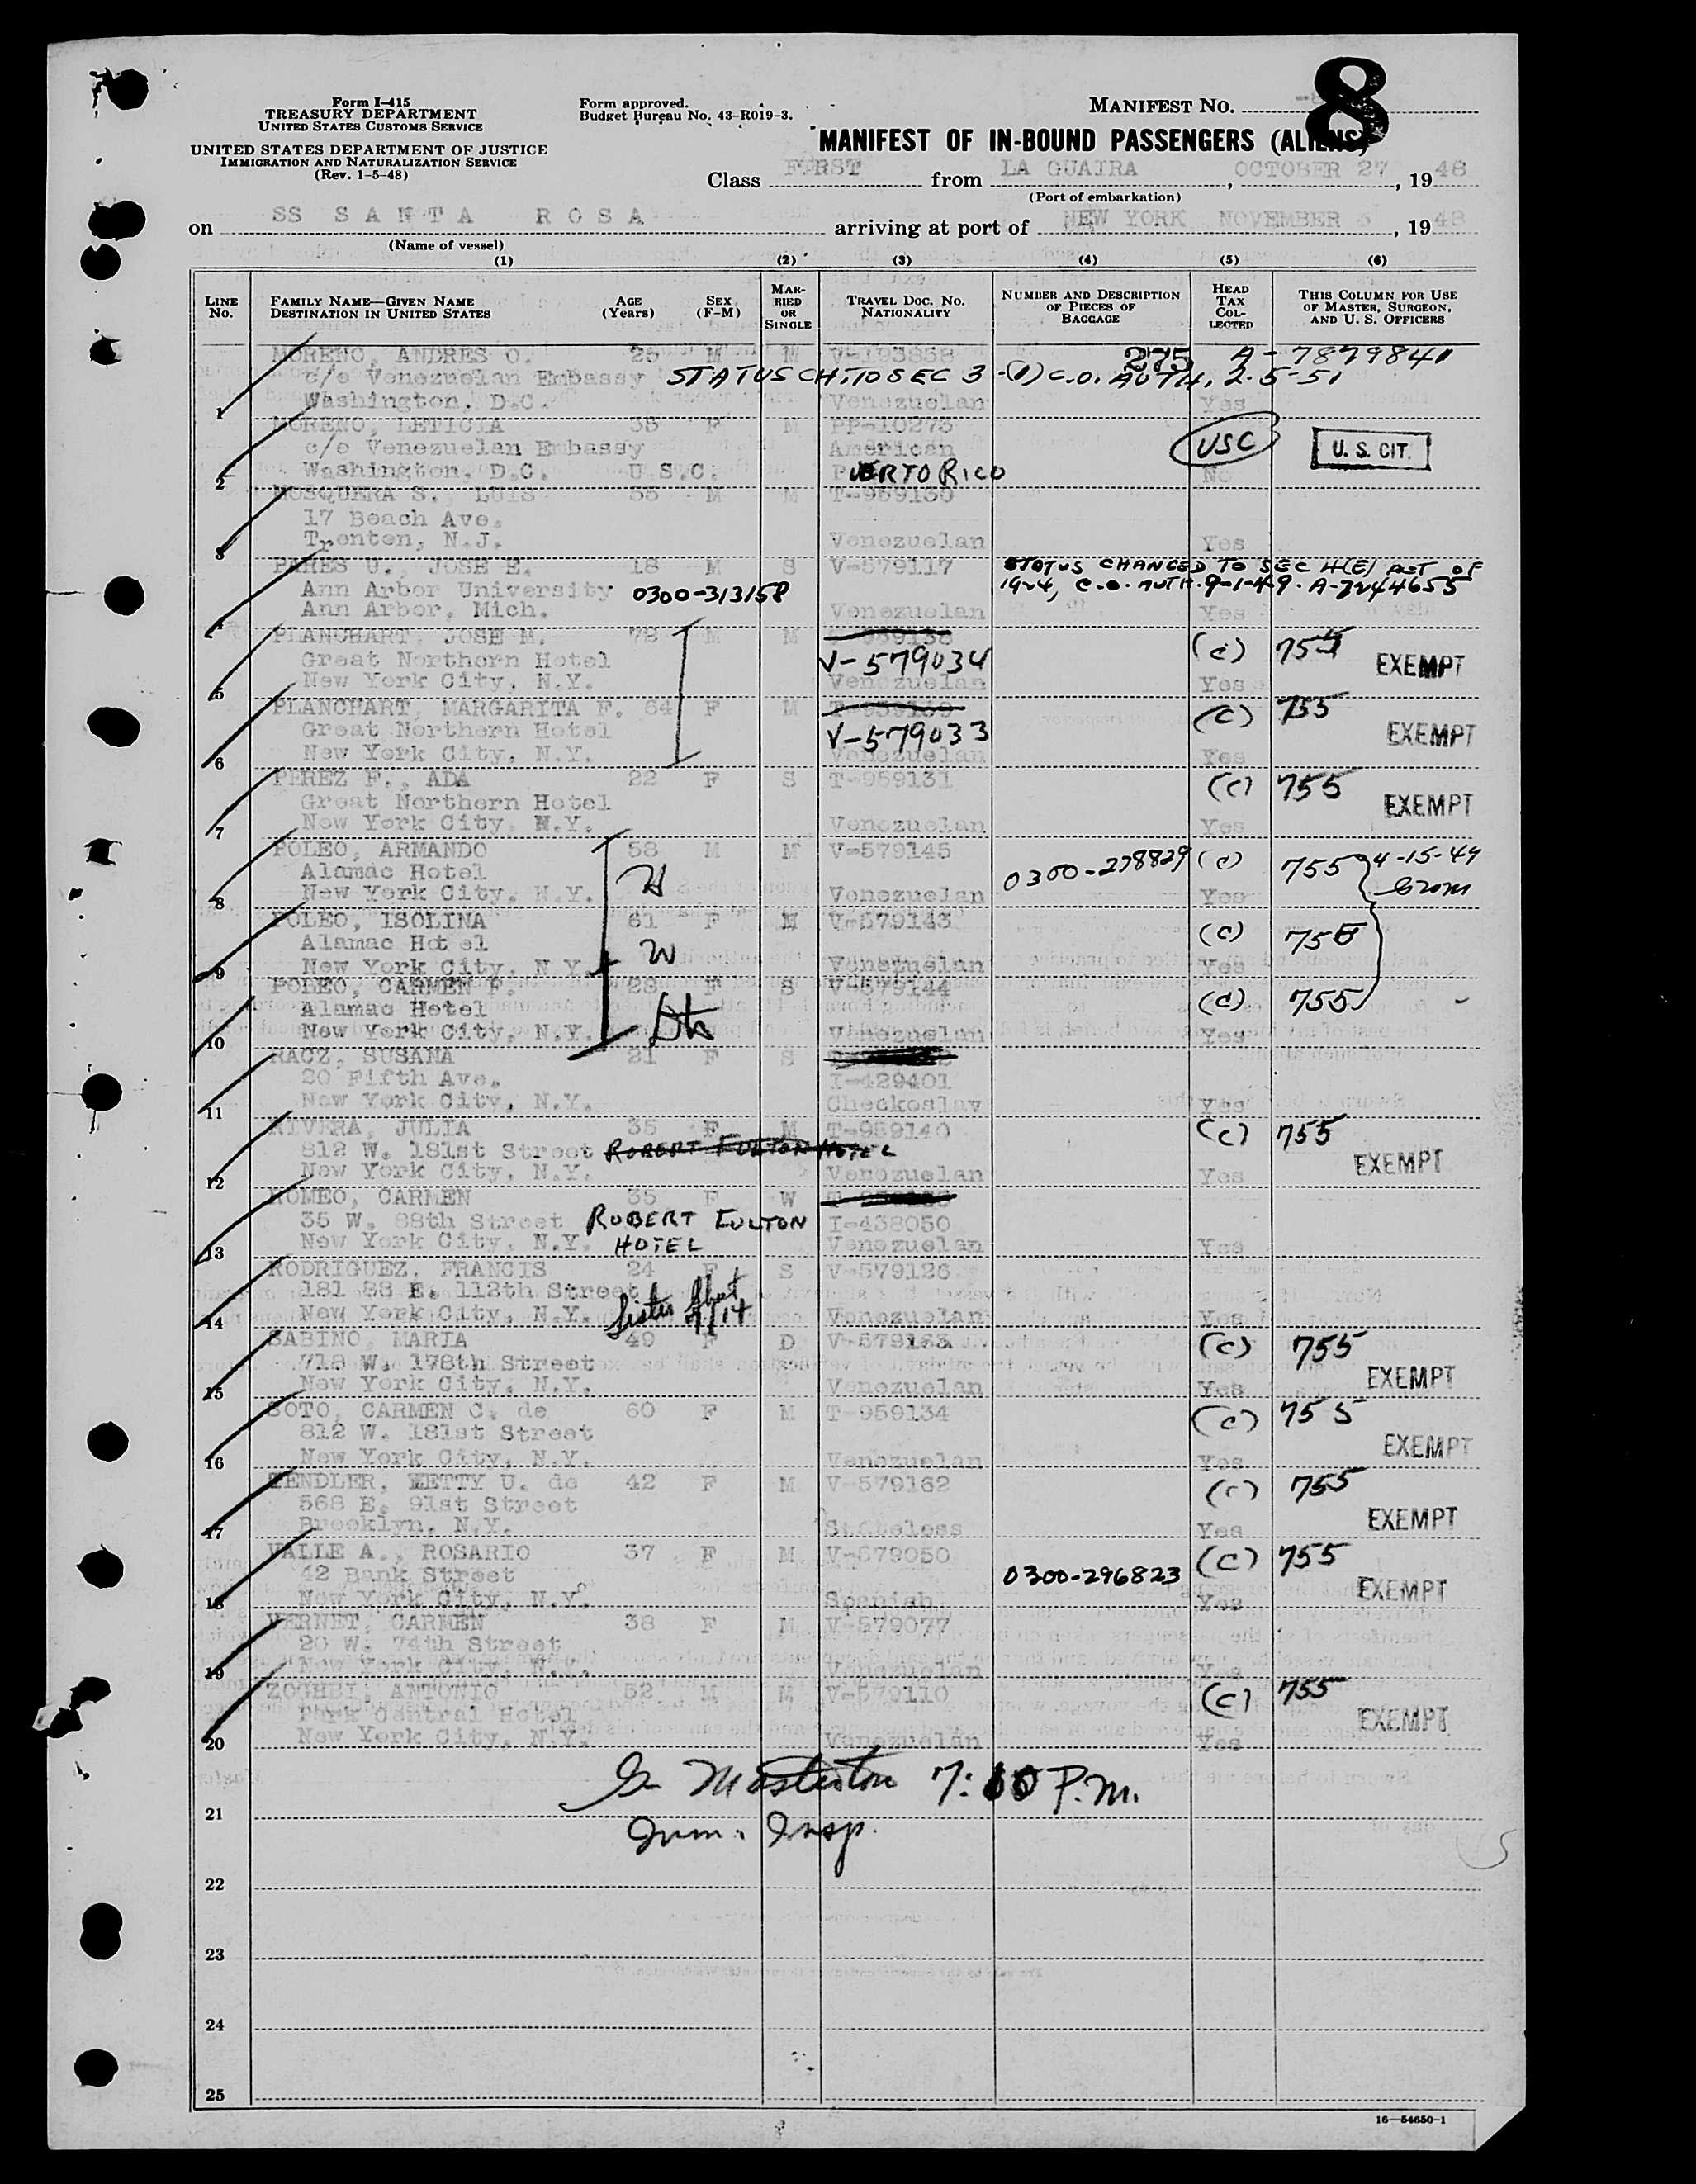 Form I-415
TREASURY DEPARTMENT
UNITED STATES CUSTOMS SERVICE
UNITED STATES DEPARTMENT OF JUSTICE
IMMIGRATION AND NATURALIZATION SERVICE
(Rev. 1-5-48)
Form approved.
Budget Bureau No. 43-R019-3.
MANIFEST No. 8
MANIFEST OF IN-BOUND PASSENGERS (ALIENS)
Class FIRST from LA GUAIRA, OCTOBER 27, 1948
(Port of embarkation)
on SS SANTA ROSA arriving at port of NEW YORK NOVEMBER 5, 1948
(Name of vessel)
(1) (2) (3) (4) (5) (6)
LINE No. FAMILY NAME—GIVEN NAME DESTINATION IN UNITED STATES AGE (Years) SEX (F-M) MARRIED OR SINGLE TRAVEL DOC. NO. NATIONALITY NUMBER AND DESCRIPTION OF PIECES OF BAGGAGE HEAD TAX COLLECTED THIS COLUMN FOR USE OF MASTER, SURGEON, AND U. S. OFFICERS
MORENO, ANDRES O. 25 M M V-193858 275 A-7879841
c/o Venezuelan Embassy STATUS CH. TO SEC 3-(1) C.O. AUTH. 2-5-51
1 Washington, D.C. Venezuelan Yes
MORENO, LETICIA 35 F M PP-10273
c/o Venezuelan Embassy American USC U. S. CIT.
2 Washington, D.C. U.S.C. PUERTO RICO No
MOSQUERA S., LUIS 55 M M T-959130
17 Beach Ave.
3 Trenton, N.J. Venezuelan Yes
PARES U., JOSE E. 18 M S V-579117 STATUS CHANGED TO SEC 4(E) ACT OF
Ann Arbor University 0300-313158 1924, C.O. AUTH. 9-1-49. A-7244655
4 Ann Arbor, Mich. Venezuelan Yes
PLANCHART, JOSE M. 78 M M (c) 755 EXEMPT
Great Northern Hotel V-579034
5 New York City, N.Y. Venezuelan Yes
PLANCHART, MARGARITA F. 64 F M (c) 755
Great Northern Hotel V-579033 EXEMPT
6 New York City, N.Y. Venezuelan Yes
PEREZ F., ADA 22 F S T-959131 (c) 755
Great Northern Hotel EXEMPT
7 New York City, N.Y. Venezuelan Yes
POLEO, ARMANDO 58 M M V-579145 (c) 755 4-15-49
Alamac Hotel H 0300-278829
8 New York City, N.Y. Venezuelan Yes
POLEO, ISOLINA 61 F M V-579143
Alamac Hotel W (c) 755
9 New York City, N.Y. Venezuelan Yes
POLEO, CARMEN F. 28 F S V-579144
Alamac Hotel Dtr (c) 755
10 New York City, N.Y. Venezuelan Yes
RACZ, SUSANA 21 F S
20 Fifth Ave. I-429401
11 New York City, N.Y. Checkoslav Yes
RIVERA, JULIA 35 F M T-959140 (c) 755
812 W. 181st Street ROBERT FULTON HOTEL EXEMPT
12 New York City, N.Y. Venezuelan Yes
ROMEO, CARMEN 35 F W
35 W. 88th Street ROBERT FULTON I-438050
13 New York City, N.Y. HOTEL Venezuelan Yes
RODRIGUEZ, FRANCIS 24 F S V-579126
181 88 E. 112th Street
14 New York City, N.Y. Sister Venezuelan Yes
SABINO, MARIA 49 F D V-579163 (c) 755
718 W. 178th Street EXEMPT
15 New York City, N.Y. Venezuelan Yes
SOTO, CARMEN C. de 60 F M T-959134 (c) 755
812 W. 181st Street EXEMPT
16 New York City, N.Y. Venezuelan Yes
TENDLER, METTY U. de 42 F M V-579162 (c) 755
568 E. 91st Street EXEMPT
17 Brooklyn, N.Y. Stateless Yes
VALLE A., ROSARIO 37 F M V-579050 (c) 755
42 Bank Street 0300-296823 EXEMPT
18 New York City, N.Y. Spanish Yes
VERNET, CARMEN 38 F M V-579077
20 W. 74th Street
19 New York City, N.Y. Venezuelan Yes
ZOGHBI, ANTONIO 52 M M V-579110 (c) 755
Park Central Hotel EXEMPT
20 New York City, N.Y. Venezuelan Yes
Masterton 7:10 P.M.
21
Imm. Insp.
22
23
24
25
16—54650-1